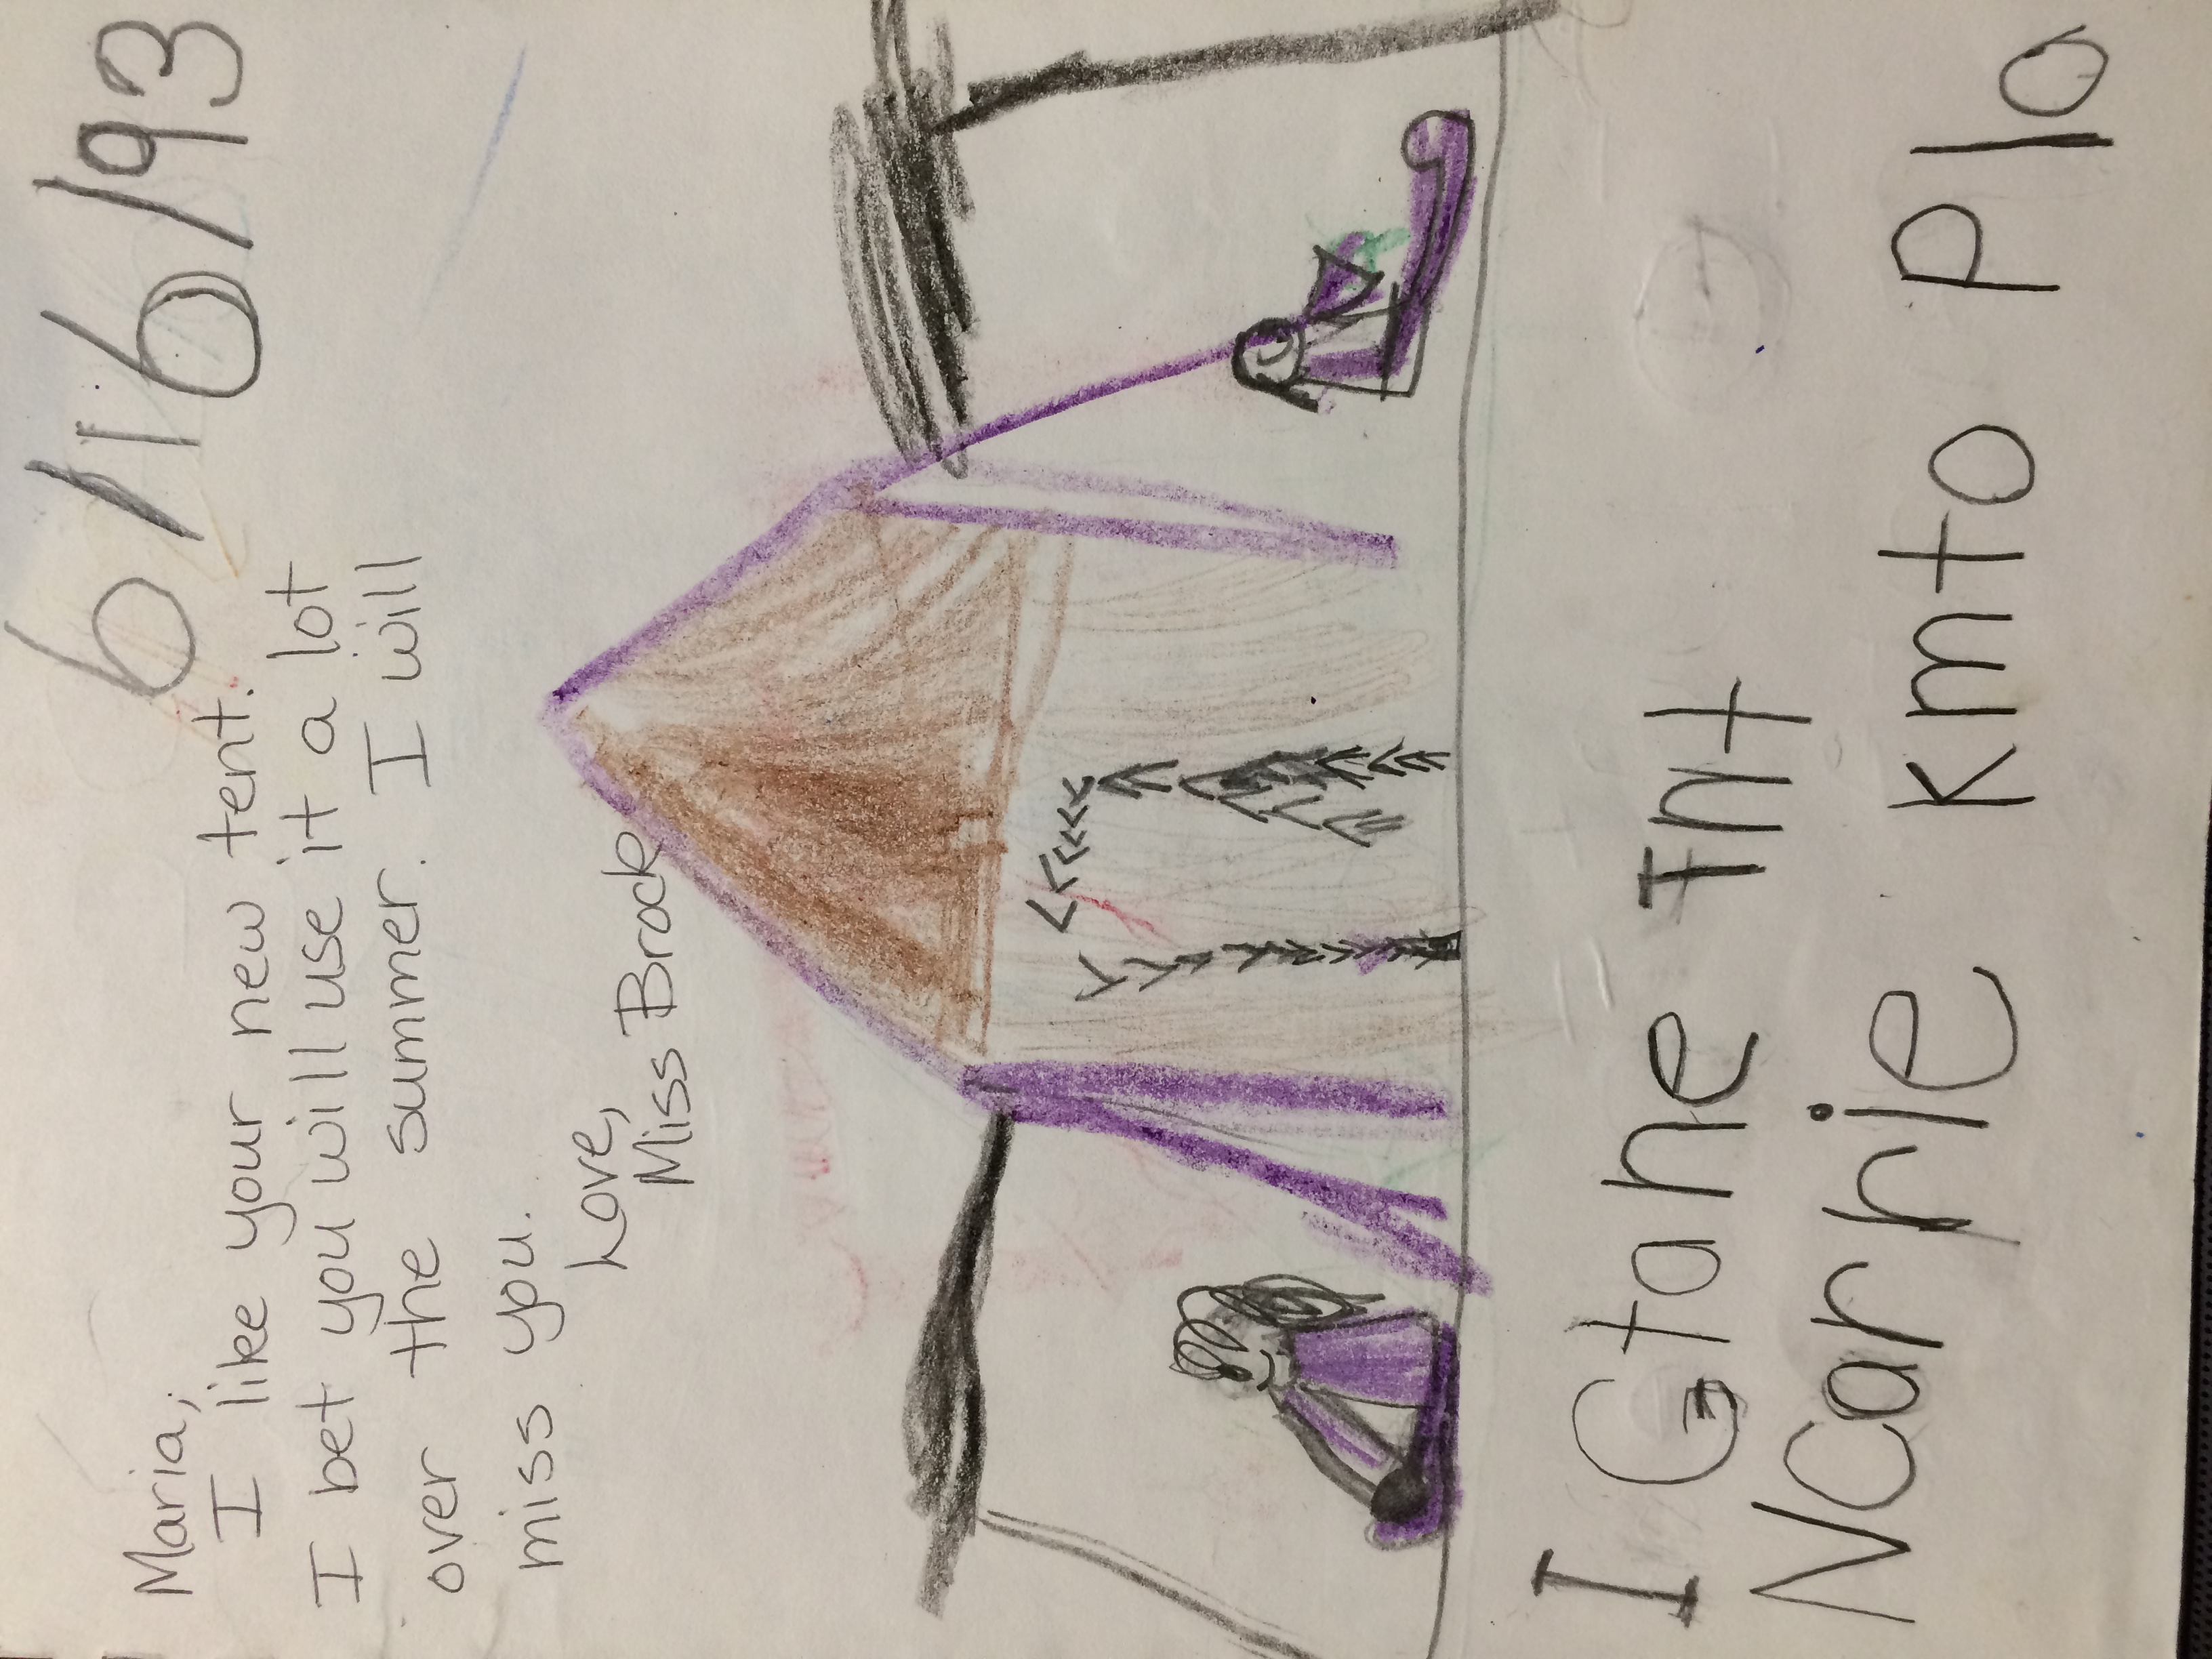 6/16/93
Maria,
I like your new tent.
I bet you will use it a lot
over the summer. I will
miss you.
Love,
Miss Brock
I Gtane Tnt
NCarrie kmto Pla